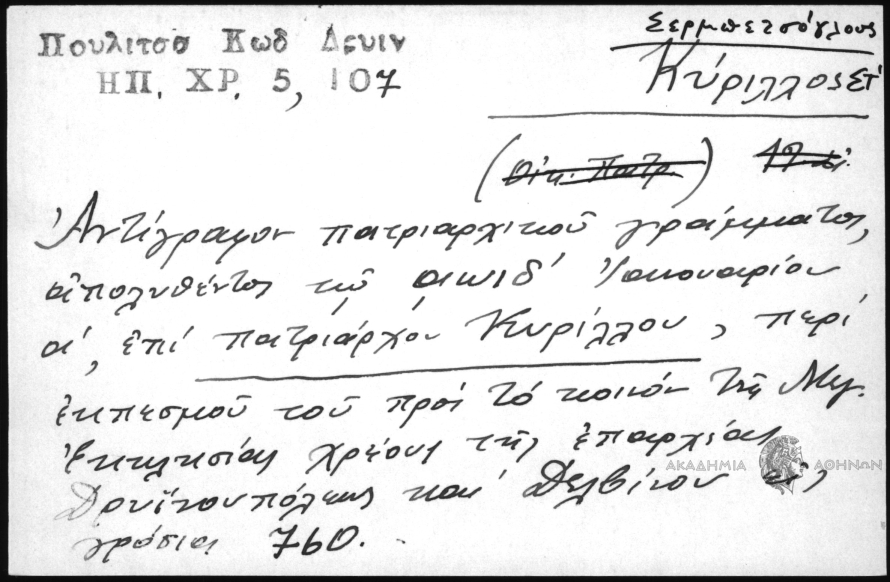 Πουλιτσα Κωδ Δευιν
ΗΠ. ΧΡ. 5, 107
Σερμπετσόγλους
Κύριλλος Στ'
(Οἰκ. Πατρ.)
Ἀντίγραφον πατριαρχικοῦ γράμματος,
ἀπολυθέντος τῷ αωιδ' Ἰανουαρίου
α', ἐπί πατριάρχου Κυρίλλου, περί
ἐκπεσμοῦ τοῦ πρός τό κοινόν τῆς Μεγ.
Ἐκκλησίας χρέους τῆς ἐπαρχίας
Δρυϊνουπόλεως καί Δελβίνου εἰς
γρόσια 760.
ΑΚΑΔΗΜΙΑ ΑΘΗΝΩΝ